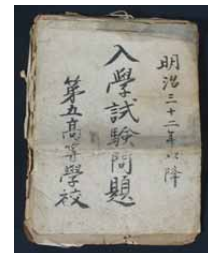 明治三十二年以降
入學試驗問題
第五高等學校